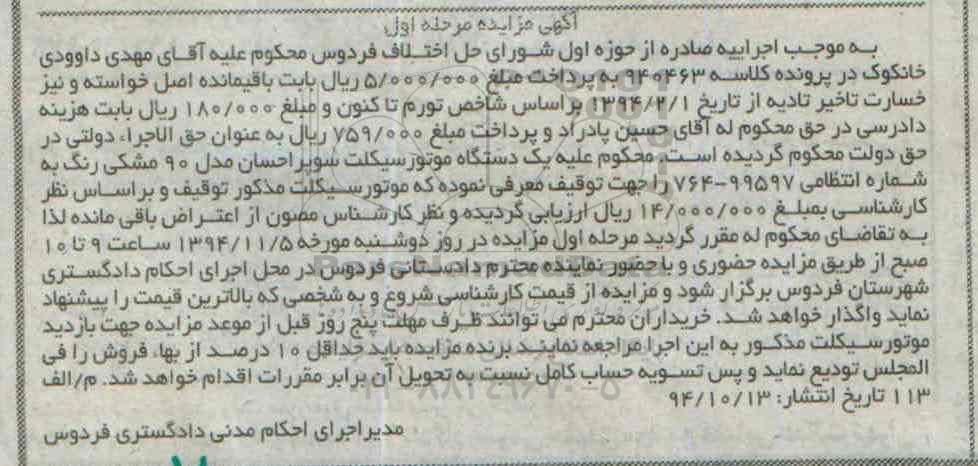 آگهی مزایده مرحله اول
به موجب اجراییه صادره از حوزه اول شورای حل اختلاف فردوس محکوم علیه آقای مهدی داوودی
خانکوک در پرونده کلاسه ۹۴۰۴۶۳ به پرداخت مبلغ ۵/۰۰۰/۰۰۰ ریال بابت باقیمانده اصل خواسته و نیز
خسارت تاخیر تادیه از تاریخ ۱۳۹۴/۲/۱ براساس شاخص تورم تا کنون و مبلغ ۱۸۰/۰۰۰ ریال بابت هزینه
دادرسی در حق محکوم له آقای حسین پادراد و پرداخت مبلغ ۷۵۹/۰۰۰ ریال به عنوان حق الاجراء دولتی در
حق دولت محکوم گردیده است. محکوم علیه یک دستگاه موتورسیکلت سوپر احسان مدل ۹۰ مشکی رنگ به
شماره انتظامی ۹۹۵۹۷-۷۶۴ را جهت توقیف معرفی نموده که موتورسیکلت مذکور توقیف و براساس نظر
کارشناسی بمبلغ ۱۴/۰۰۰/۰۰۰ ریال ارزیابی گردیده و نظر کارشناس مصون از اعتراض باقی مانده لذا
به تقاضای محکوم له مقرر گردید مرحله اول مزایده در روز دوشنبه مورخه ۱۳۹۴/۱۱/۵ ساعت ۹ تا ۱۰
صبح از طریق مزایده حضوری و با حضور نماینده محترم دادستانی فردوس در محل اجرای احکام دادگستری
شهرستان فردوس برگزار شود و مزایده از قیمت کارشناسی شروع و به شخصی که بالاترین قیمت را پیشنهاد
نماید واگذار خواهد شد. خریداران محترم می توانند ظرف مهلت پنج روز قبل از موعد مزایده جهت بازدید
موتورسیکلت مذکور به این اجرا مراجعه نمایند برنده مزایده باید حداقل ۱۰ درصد از بها، فروش را فی
المجلس تودیع نماید و پس تسویه حساب کامل نسبت به تحویل آن برابر مقررات اقدام خواهد شد. م/الف
۱۱۳ تاریخ انتشار: ۹۴/۱۰/۱۳
مدیر اجرای احکام مدنی دادگستری فردوس